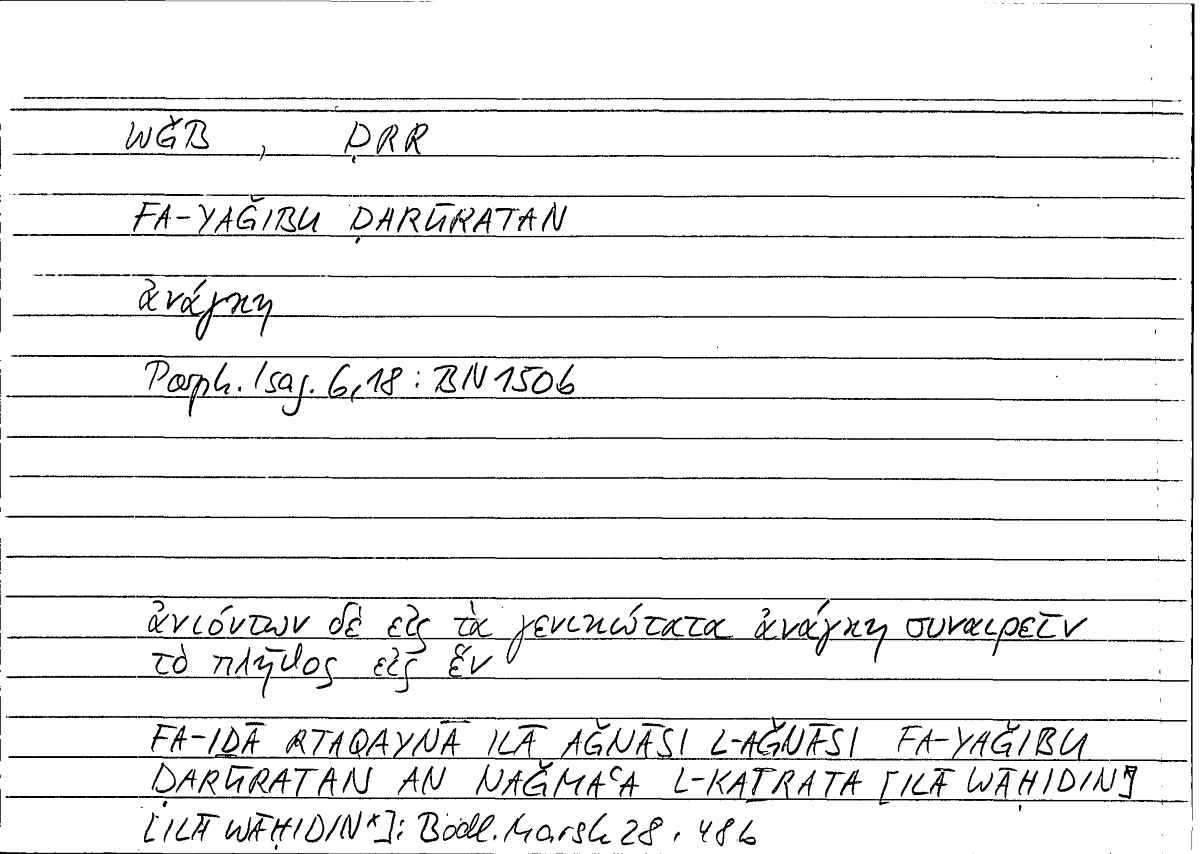 WǦB , ḌRR
FA-YAǦIBU ḌARŪRATAN
ἀνάγκη
Porph. Isag. 6,18 : BN 150b
ἀνιόντων δὲ εἰς τὰ γενικώτατα ἀνάγκη συναιρεῖν
τὸ πλῆθος εἰς ἕν
FA-IḎĀ RTAQAYNĀ ILĀ AǦNĀSI L-AǦNĀSI FA-YAǦIBU
ḌARŪRATAN AN NAǦMAʿA L-KAṮRATA [ILĀ WĀḤIDIN]
[ILĀ WĀḤIDIN*]: Bodl. Marsh 28, 48b